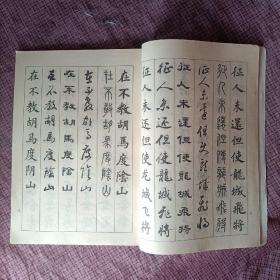 征人未還但使龍城飛將
征人未還但使龍城飛將
征人未還但使龍城飛將
征人未還但使龍城飛將
征人未還但使龍城飛將
征人未还但使龙城飞将
在不教胡馬度陰山
在不教胡馬度陰山
在不教胡馬度陰山
在不教胡馬度陰山
在不教胡馬度陰山
在不教胡马度阴山